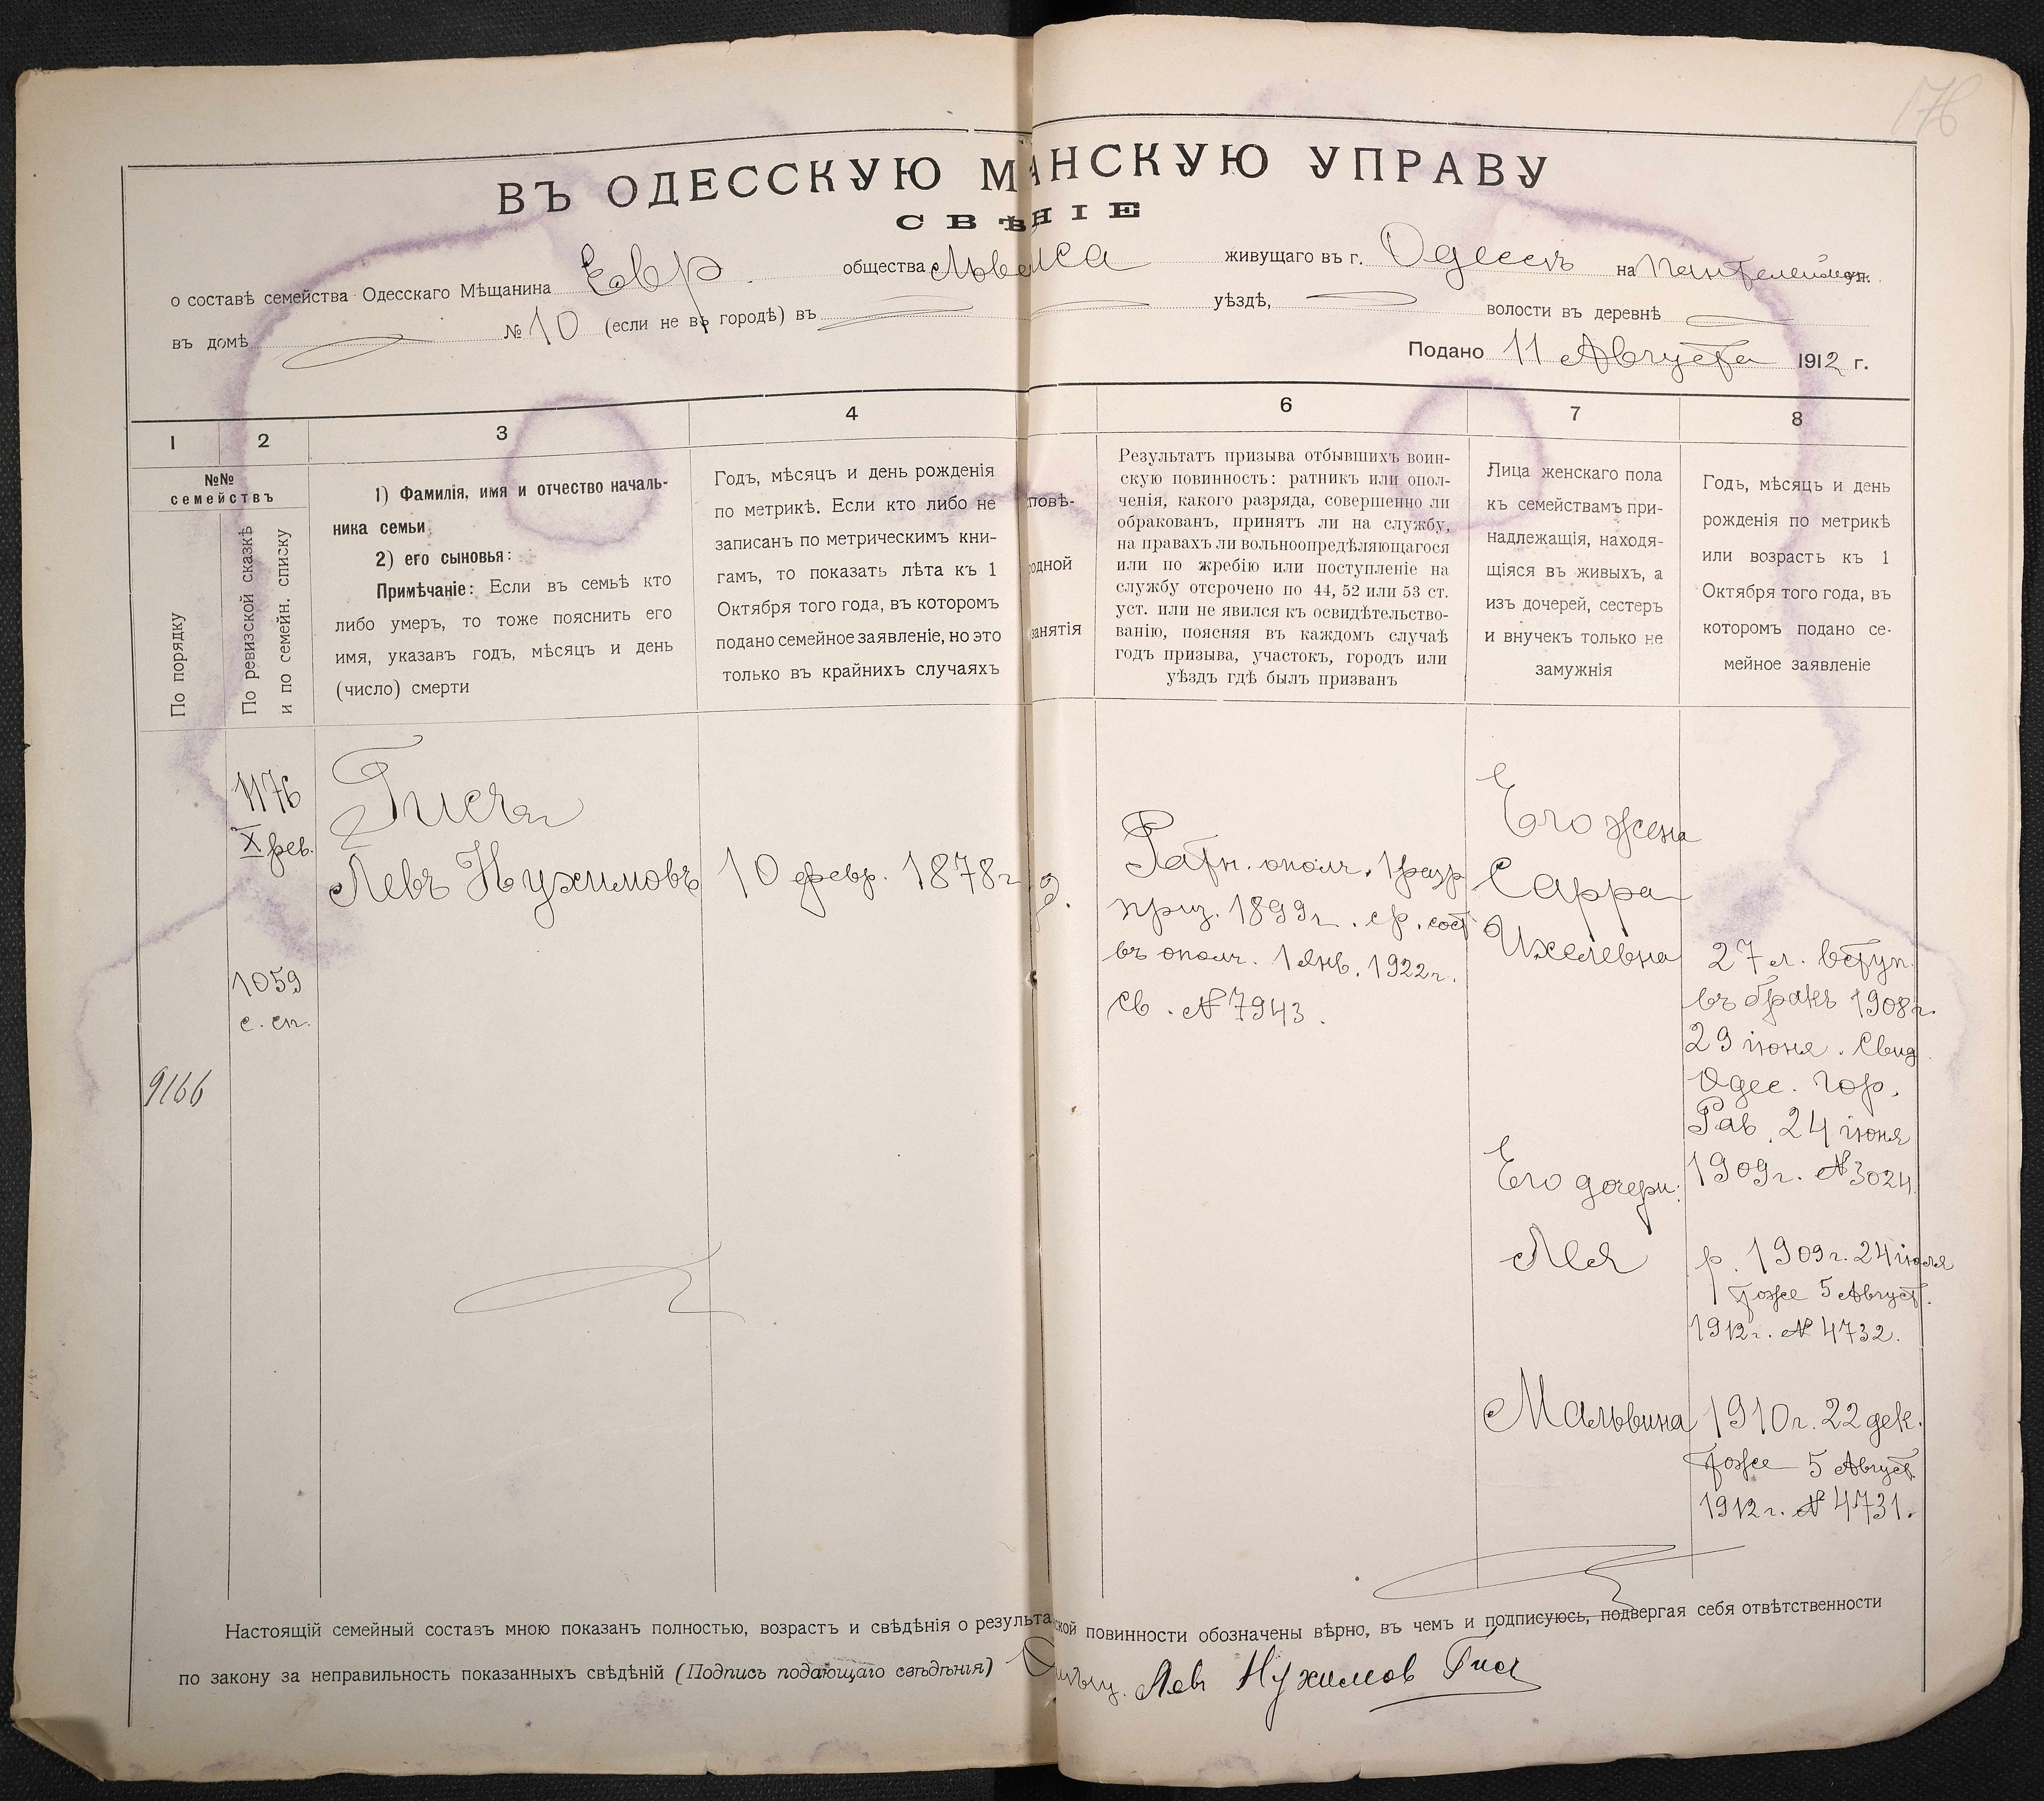 176
ВЪ ОДЕССКУЮ М АНСКУЮ УПРАВУ
СВѢ НІЕ
о составѣ семейства Одесскаго Мѣщанина Евр. общества Льв живущаго въ г. Одессѣ на ул.
въ домѣ № 10 (если не въ городѣ) въ уѣздѣ, волости въ деревнѣ
Подано 11 Августа 1912 г.
1 2 3 4 6 7 8
№№
семействъ
По порядку
По ревизской сказкѣ
и по семейн. списку
1) Фамилія, имя и отчество началь-
ника семьи
2) его сыновья:
Примѣчаніе: Если въ семьѣ кто
либо умеръ, то тоже пояснить его
имя, указавъ годъ, мѣсяцъ и день
(число) смерти
Годъ, мѣсяцъ и день рожденія
по метрикѣ. Если кто либо не
записанъ по метрическимъ кни-
гамъ, то показать лѣта къ 1
Октября того года, въ которомъ
подано семейное заявленіе, но это
только въ крайнихъ случаяхъ
повѣ-
одной
занятія
Результатъ призыва отбывшихъ воин-
скую повинность: ратникъ или опол-
ченія, какого разряда, совершенно ли
обракованъ, принятъ ли на службу,
на правахъ ли вольноопредѣляющагося
или по жребію или поступленіе на
службу отсрочено по 44, 52 или 53 ст.
уст. или не явился къ освидѣтельство-
ванію, поясняя въ каждомъ случаѣ
годъ призыва, участокъ, городъ или
уѣздъ гдѣ былъ призванъ
Лица женскаго пола
къ семействамъ при-
надлежащія, находя-
щіяся въ живыхъ, а
изъ дочерей, сестеръ
и внучекъ только не
замужнія
Годъ, мѣсяцъ и день
рожденія по метрикѣ
или возрастъ къ 1
Октября того года, въ
которомъ подано се-
мейное заявленіе
9166
1176
X рев.
1059
с. сп.
Левъ Нухимовъ
10 февр. 1878 г.
Ратн. ополч. 1 разр
приз. 1899 г. ср. сост
въ ополч. 1 Янв. 1922 г.
св. № 7943.
Его жена
Сарра
Ихелевна
27 л. вступ.
въ бракъ 1908 г.
29 іюня. Свид
Одес. Гор.
Рав. 24 іюня
1909 г. № 3024
Его дочери:
Лея
р. 1909 г. 24 іюля
тоже 5 Август.
1912 г. № 4732.
Мальвина
1910 г. 22 дек.
тоже 5 Август
1912 г. № 4731.
Настоящій семейный составъ мною показанъ полностью, возрастъ и свѣдѣнія о результа ской повинности обозначены вѣрно, въ чемъ и подписуюсь, подвергая себя отвѣтственности
по закону за неправильность показанныхъ свѣдѣній (Подпись подающаго свѣдѣнія) Левъ Нухимов